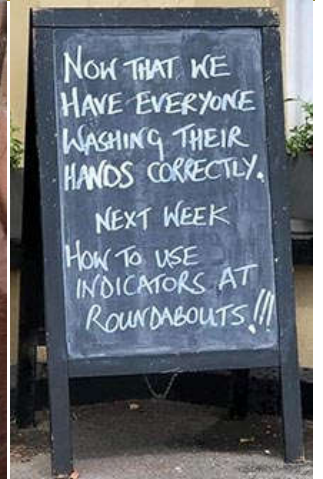 NOW THAT WE
HAVE EVERYONE
WASHING THEIR
HANDS CORRECTLY.
NEXT WEEK
HOW TO USE
INDICATORS AT
ROUNDABOUTS!!!